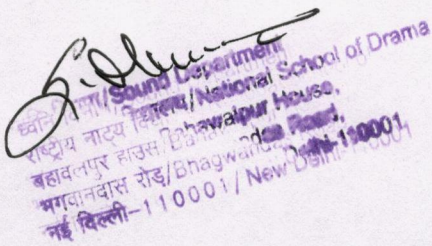 ध्वनि विभाग/Sound Department
राष्ट्रीय नाट्य विद्यालय/National School of Drama
बहावलपुर हाउस/Bahawalpur House,
भगवानदास रोड़/Bhagwandas Road,
नई दिल्ली-110001/New Delhi-110001